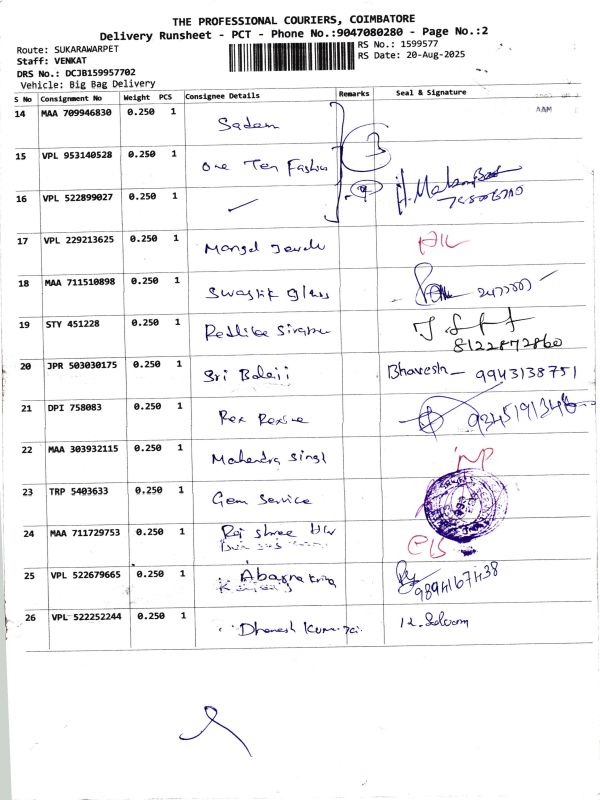 THE PROFESSIONAL COURIERS, COIMBATORE
Delivery Runsheet - PCT - Phone No.:9047080280 - Page No.:2
Route: SUKARAWARPET
RS No.: 1599577
Staff: VENKAT
RS Date: 20-Aug-2025
DRS No.: DCJB159957702
Vehicle: Big Bag Delivery
S No Consignment No Weight PCS Consignee Details Remarks Seal & Signature
14 MAA 709946830 0.250 1 Sadam
15 VPL 953140528 0.250 1 One Ten Fashion 3
16 VPL 522899027 0.250 1
17 VPL 229213625 0.250 1
18 MAA 711510898 0.250 1 Swastik Glass
19 STY 451228 0.250 1
8122872860
20 JPR 503030175 0.250 1 Sri Balaji Bhavesh - 9943138751
21 DPI 758083 0.250 1 Rex Rexine
22 MAA 303932115 0.250 1 Mahendra Singh
23 TRP 5403633 0.250 1 Gem Service
24 MAA 711729753 0.250 1 Raj Shree HW
25 VPL 522679665 0.250 1 9894167438
26 VPL 522252244 0.250 1 Dhanesh Kumar